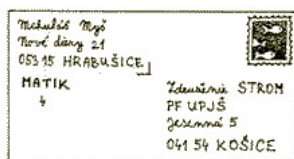 Mikuláš Myš
Nové diery 21
053 15 HRABUŠICE
MATIK
4
Združenie STROM
PF UPJŠ
Jesenná 5
041 54 KOŠICE